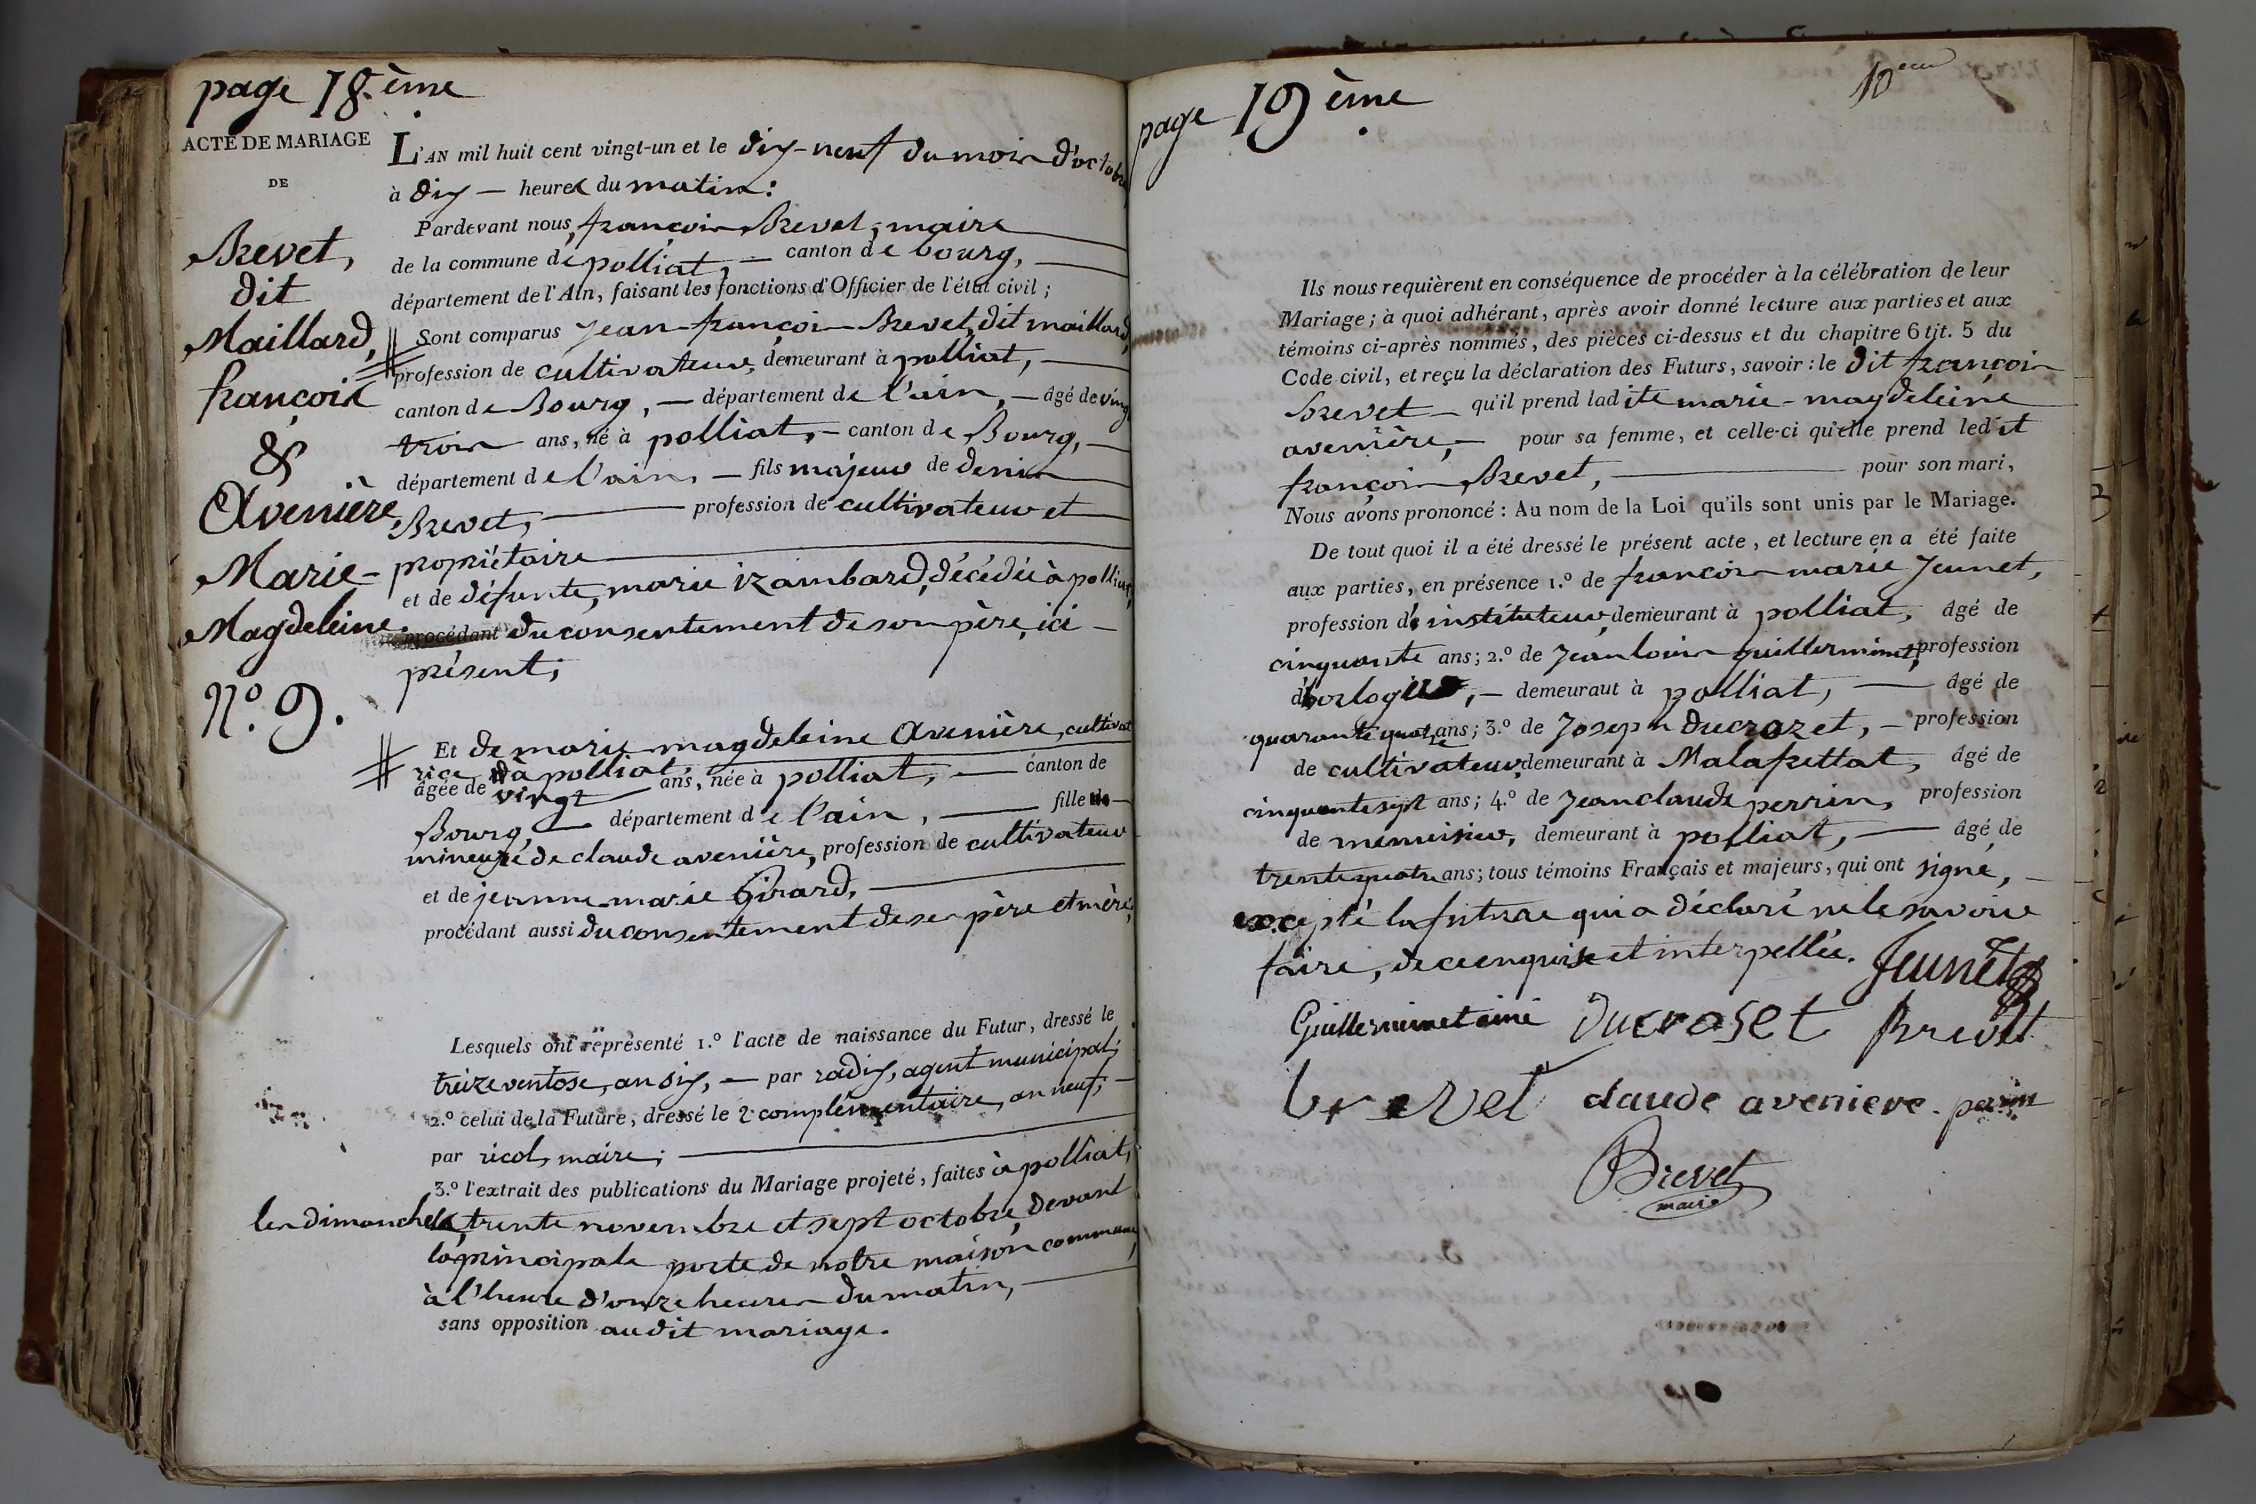 page 18.ème
ACTE DE MARIAGE
DE
Brevet,
dit
Maillard,
françois
&
Avenière
Marie-
Magdeleine.
N.o 9.
L'AN mil huit cent vingt-un et le dix-neuf du mois d'octobre
à dix — heures du matin :
Pardevant nous, françois Brevet, maire
de la commune de polliat, — canton de bourg,
département de l'Ain, faisant les fonctions d'Officier de l'état civil ;
Sont comparus Jean-françois Brevet, dit maillard,
profession de cultivateur, demeurant à polliat,
canton de Bourg, — département de l'ain, — âgé de vingt
trois ans, né à polliat, — canton de Bourg, —
département de l'ain, — fils majeur de denis
Brevet, — profession de cultivateur et
propriétaire
et de défunte, marie izambard, décédée à polliat,
procédant du consentement de son père, ici —
présent ;
Et de marie magdeleine Avenière, cultivat
rice à polliat,
âgée de vingt ans, née à polliat, — canton de
Bourg, — département de l'ain, — fille
mineure de claude avenière, profession de cultivateur
et de jeanne marie Girard,
procédant aussi du consentement de ses père et mère,
Lesquels ont représenté 1.o l'acte de naissance du Futur, dressé le
treize ventose, an six, — par radix, agent municipal ;
2.o celui de la Future, dressé le 2 complémentaire, an neuf, —
par ricol, maire ;
3.o l'extrait des publications du Mariage projeté, faites à polliat,
les dimanches, trente novembre et sept octobre, devant
la principale porte de notre maison commune,
à l'heure d'onze heures du matin, —
sans opposition au dit mariage.
page 19ème
10eme
Ils nous requièrent en conséquence de procéder à la célébration de leur
Mariage ; à quoi adhérant, après avoir donné lecture aux parties et aux
témoins ci-après nommés, des pièces ci-dessus et du chapitre 6 tit. 5 du
Code civil, et reçu la déclaration des Futurs, savoir : le dit françois
brevet — qu'il prend ladite marie-magdeleine
avenière, — pour sa femme, et celle-ci qu'elle prend ledit
françois Brevet, — pour son mari,
Nous avons prononcé : Au nom de la Loi qu'ils sont unis par le Mariage.
De tout quoi il a été dressé le présent acte, et lecture en a été faite
aux parties, en présence 1.o de francois marie Jeunet,
profession d'instituteur, demeurant à polliat, âgé de
cinquante ans ; 2.o de Jean louis guillerminet, profession
d'horloger, — demeuraut à polliat, — âgé de
quarante quatre ans ; 3.o de Joseph ducrozet, — profession
de cultivateur, demeurant à Malafrettat, âgé de
cinquante sept ans ; 4.o de Jean claude perrin, profession
de menuisier, demeurant à polliat, — âgé de
trente quatre ans ; tous témoins Français et majeurs, qui ont signé, —
excepté la future qui a déclaré ne le savoir
faire, de ce enquise et interpellée. Jeunet
Guillerminet ainé Ducroset Brevet
brevet claude aveniere. perrin
Brevet
maire